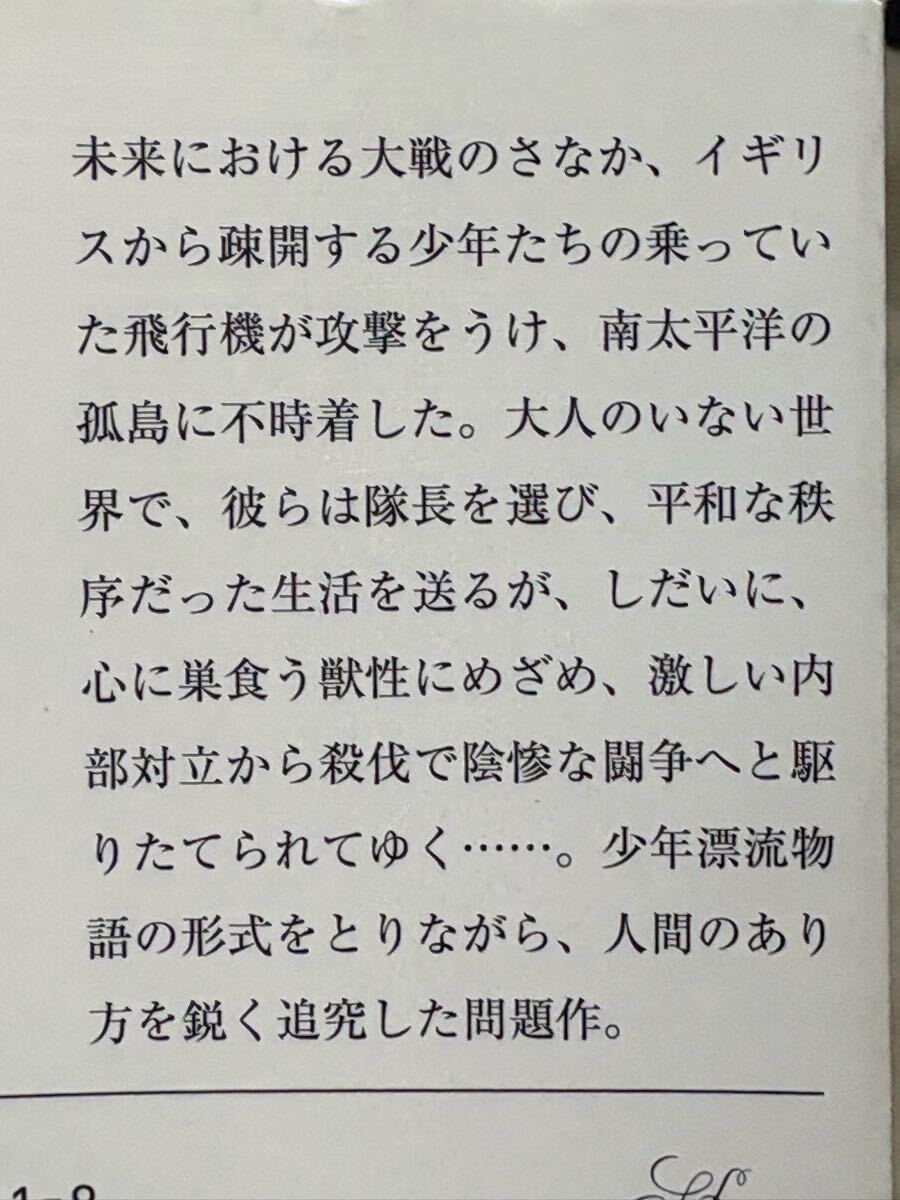 未来における大戦のさなか、イギリ
スから疎開する少年たちの乗ってい
た飛行機が攻撃をうけ、南太平洋の
孤島に不時着した。大人のいない世
界で、彼らは隊長を選び、平和な秩
序だった生活を送るが、しだいに、
心に巣食う獣性にめざめ、激しい内
部対立から殺伐で陰惨な闘争へと駆
りたてられてゆく……。少年漂流物
語の形式をとりながら、人間のあり
方を鋭く追究した問題作。